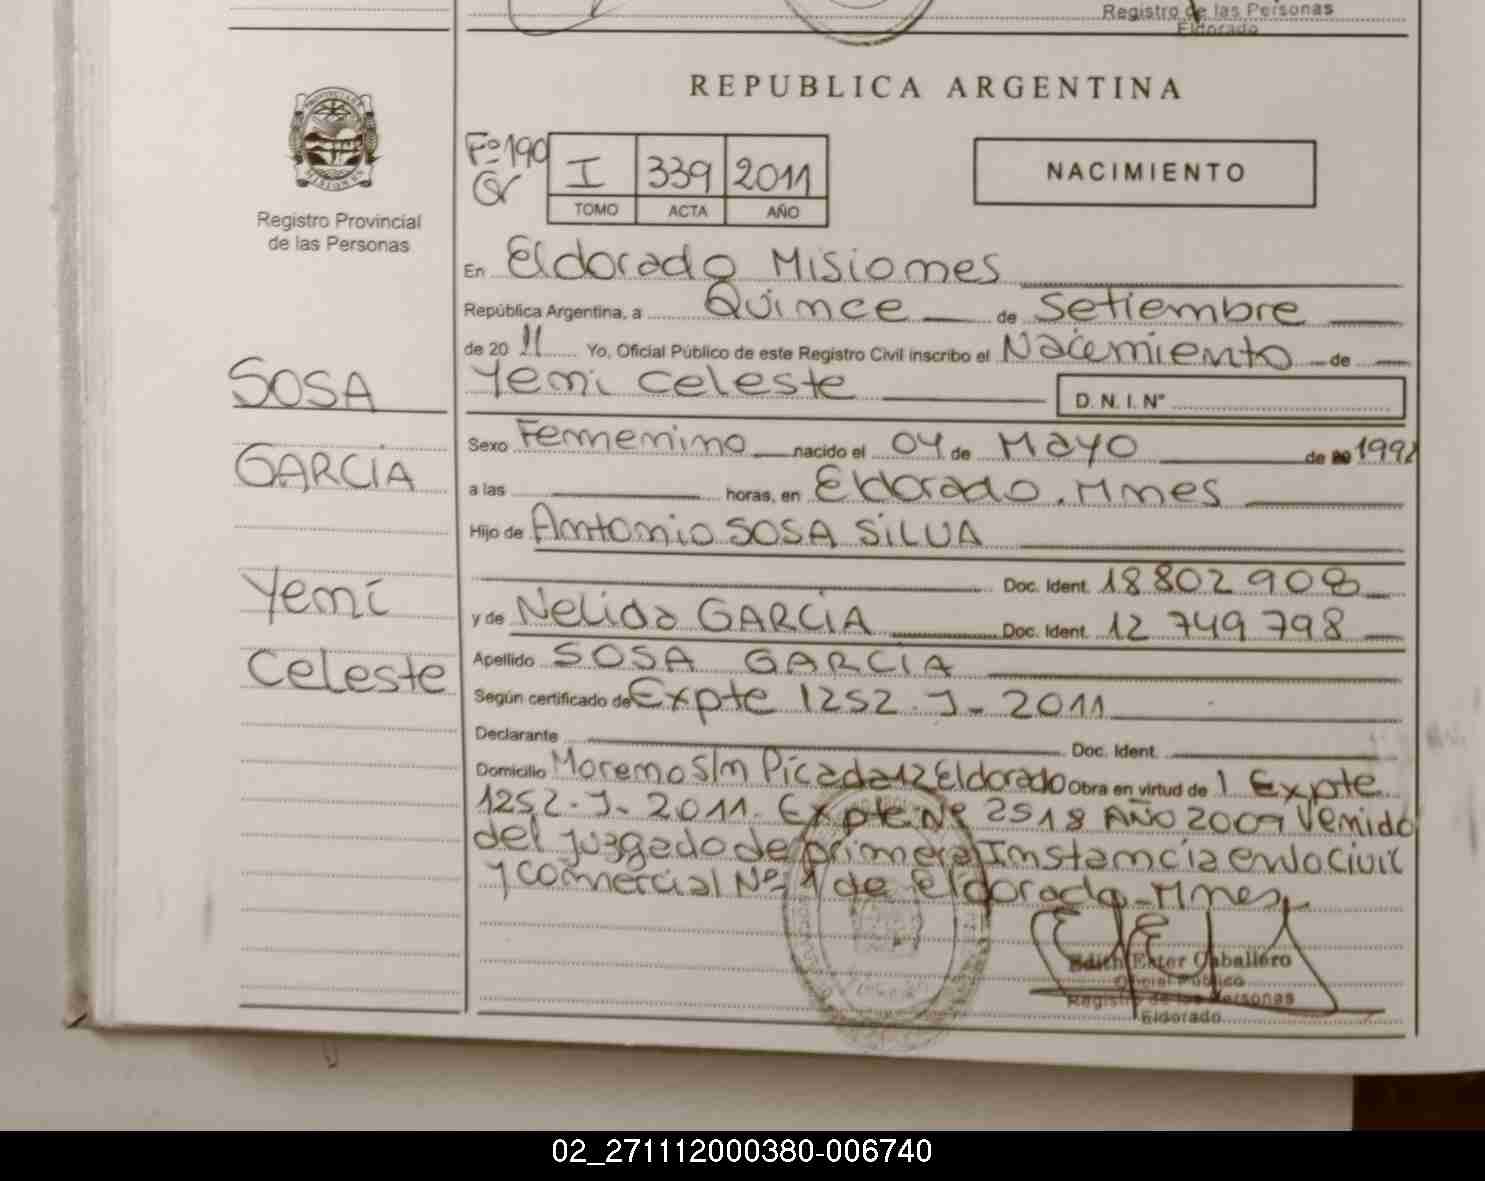 Registro de las Personas
Eldorado
REPUBLICA ARGENTINA
PROVINCIA DE
MISIONES
Registro Provincial
de las Personas
Fº 190
I 339 2011
TOMO ACTA AÑO
NACIMIENTO
En Eldorado Misiones
República Argentina, a Quince de Setiembre
de 2011 Yo, Oficial Público de este Registro Civil inscribo el Nacimiento de
SOSA
Yeni Celeste
D. N. I. Nº
Sexo Femenino nacido el 04 de Mayo de 1992
GARCIA
a las horas, en Eldorado. Mnes
Hijo de Antonio SOSA SILVA
Doc. Ident. 18802908
Yeni
y de Nelida GARCIA Doc. Ident. 12 749 798
Celeste
Apellido SOSA GARCIA
Según certificado de Expte 1252. J- 2011
Declarante Doc. Ident.
Domicilio Moreno S/n Picada 12 Eldorado Obra en virtud de 1 Expte
1252. J- 2011. Expte Nº 2518 AÑO 2009 Venido
del juzgado de primera Instancia en lo Civil
y Comercial Nº 1 de Eldorado-Mnes
Edith Ester Caballero
Oficial Público
Registro de las Personas
Eldorado
02_271112000380-006740